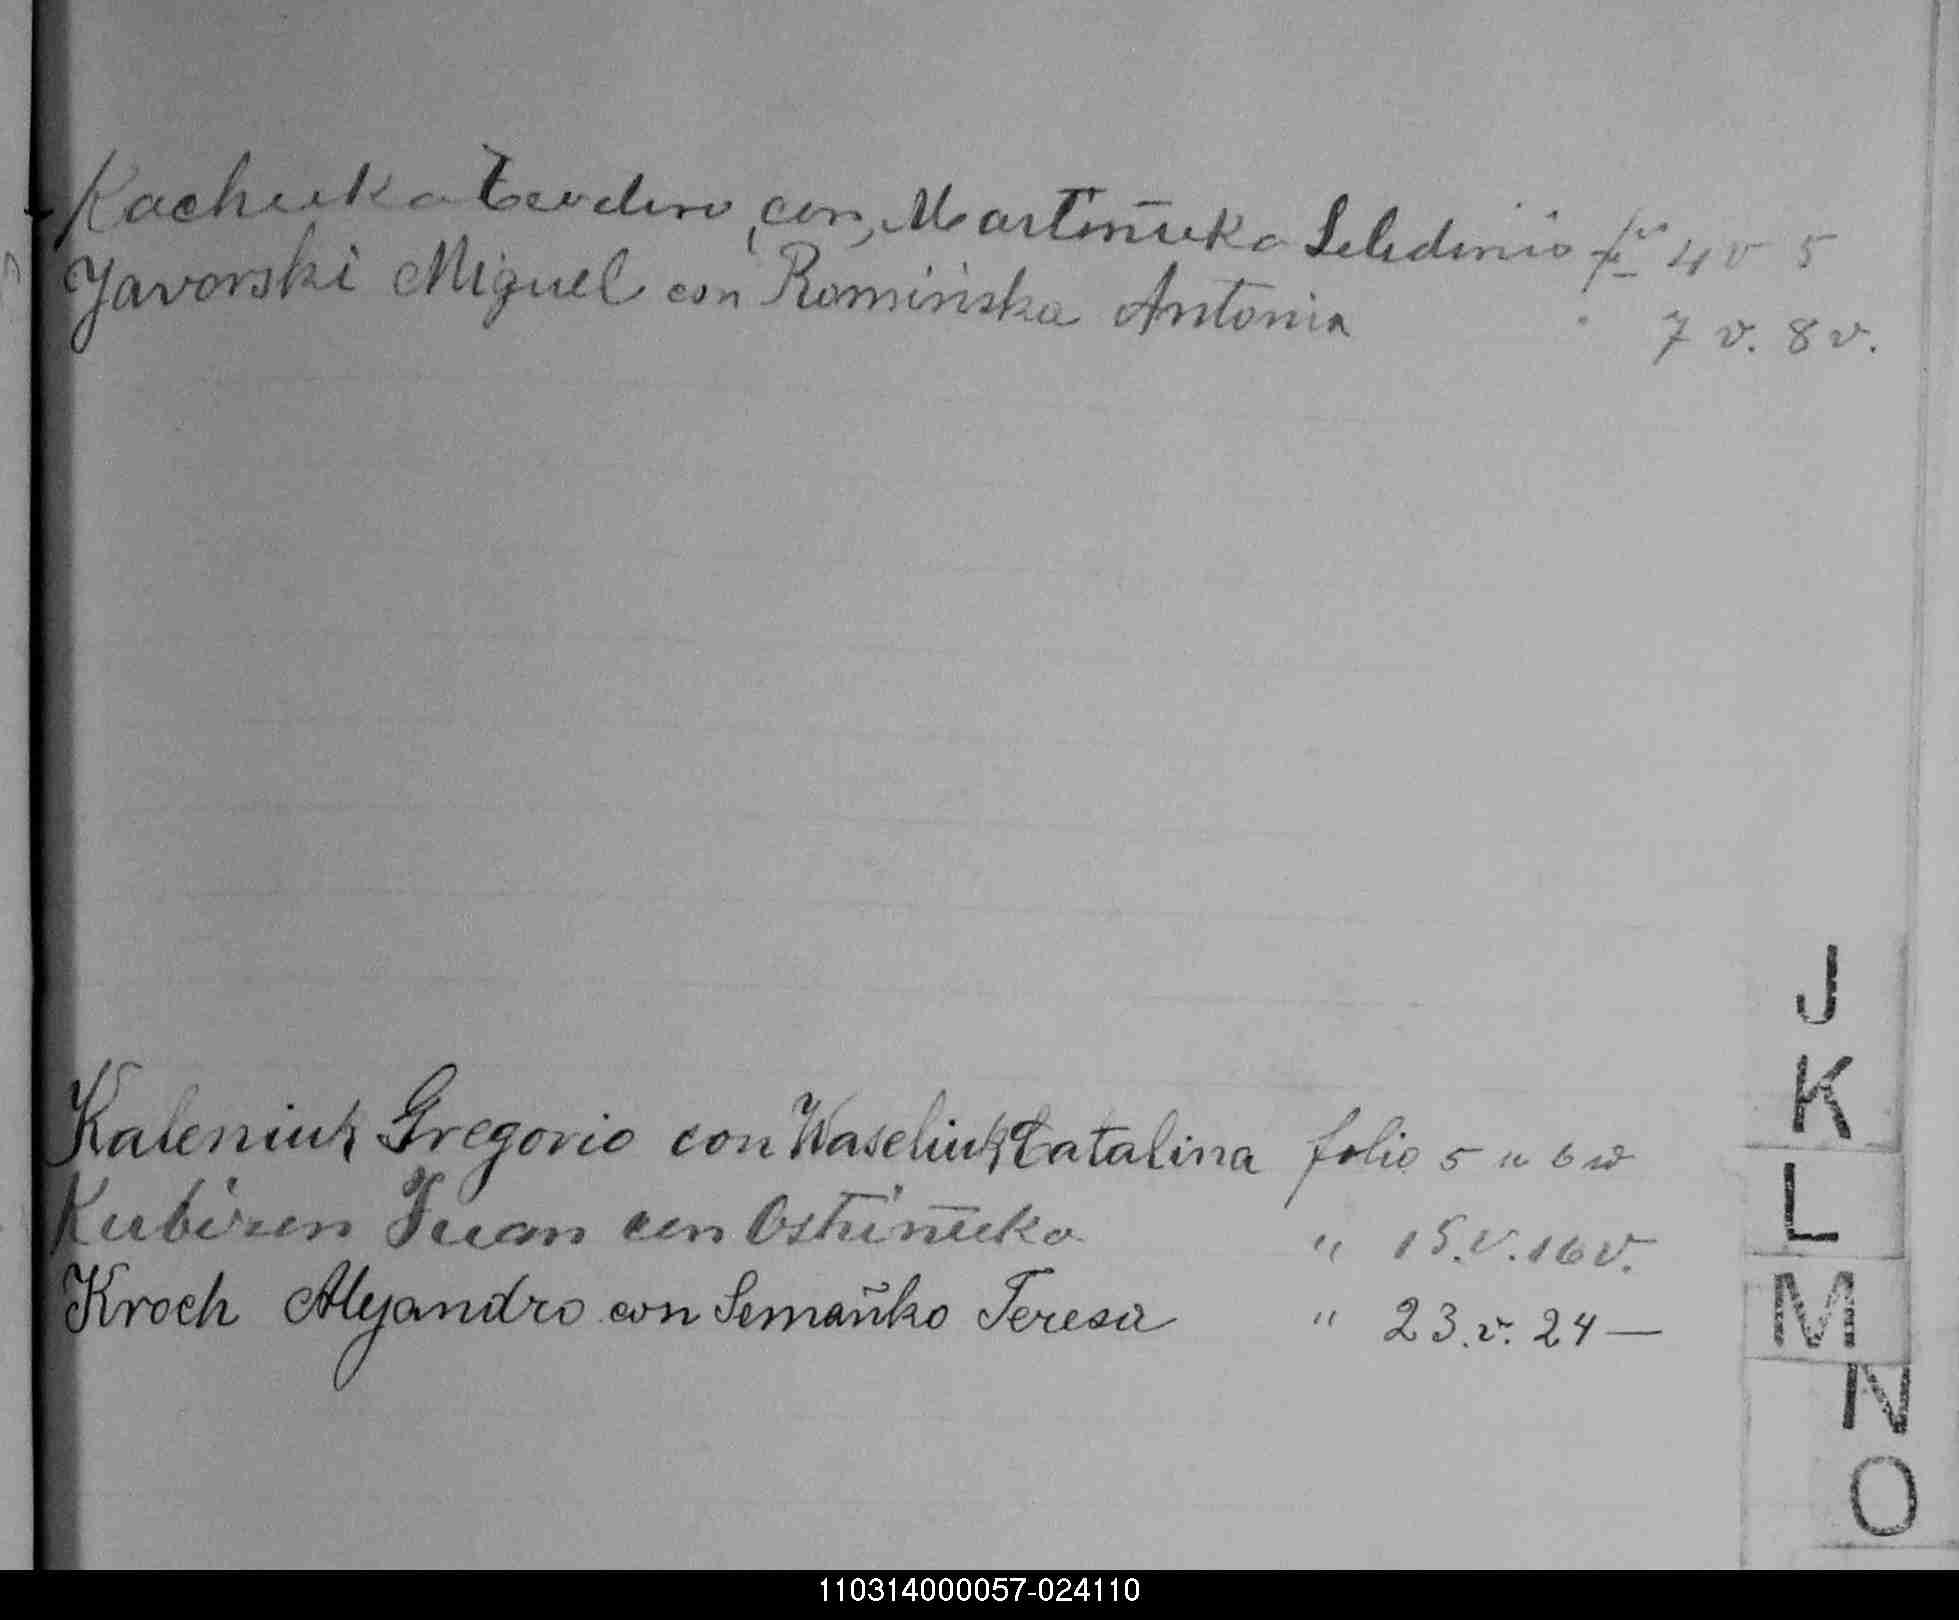 Kachuka Teodoro, con, Martiñuka Seledinio fo 4 v 5
Javorski Miguel con Romińska Antonia 7 v. 8 v.
Kaleniuk Gregorio con Waseliuk Catalina folio 5 u 6 w
Kubizen Juan con Ostinuka " 15.v.16v.
Kroch Alejandro con Semañko Teresa " 23.v. 24 —
J
K
L
M
N
O
110314000057-024110